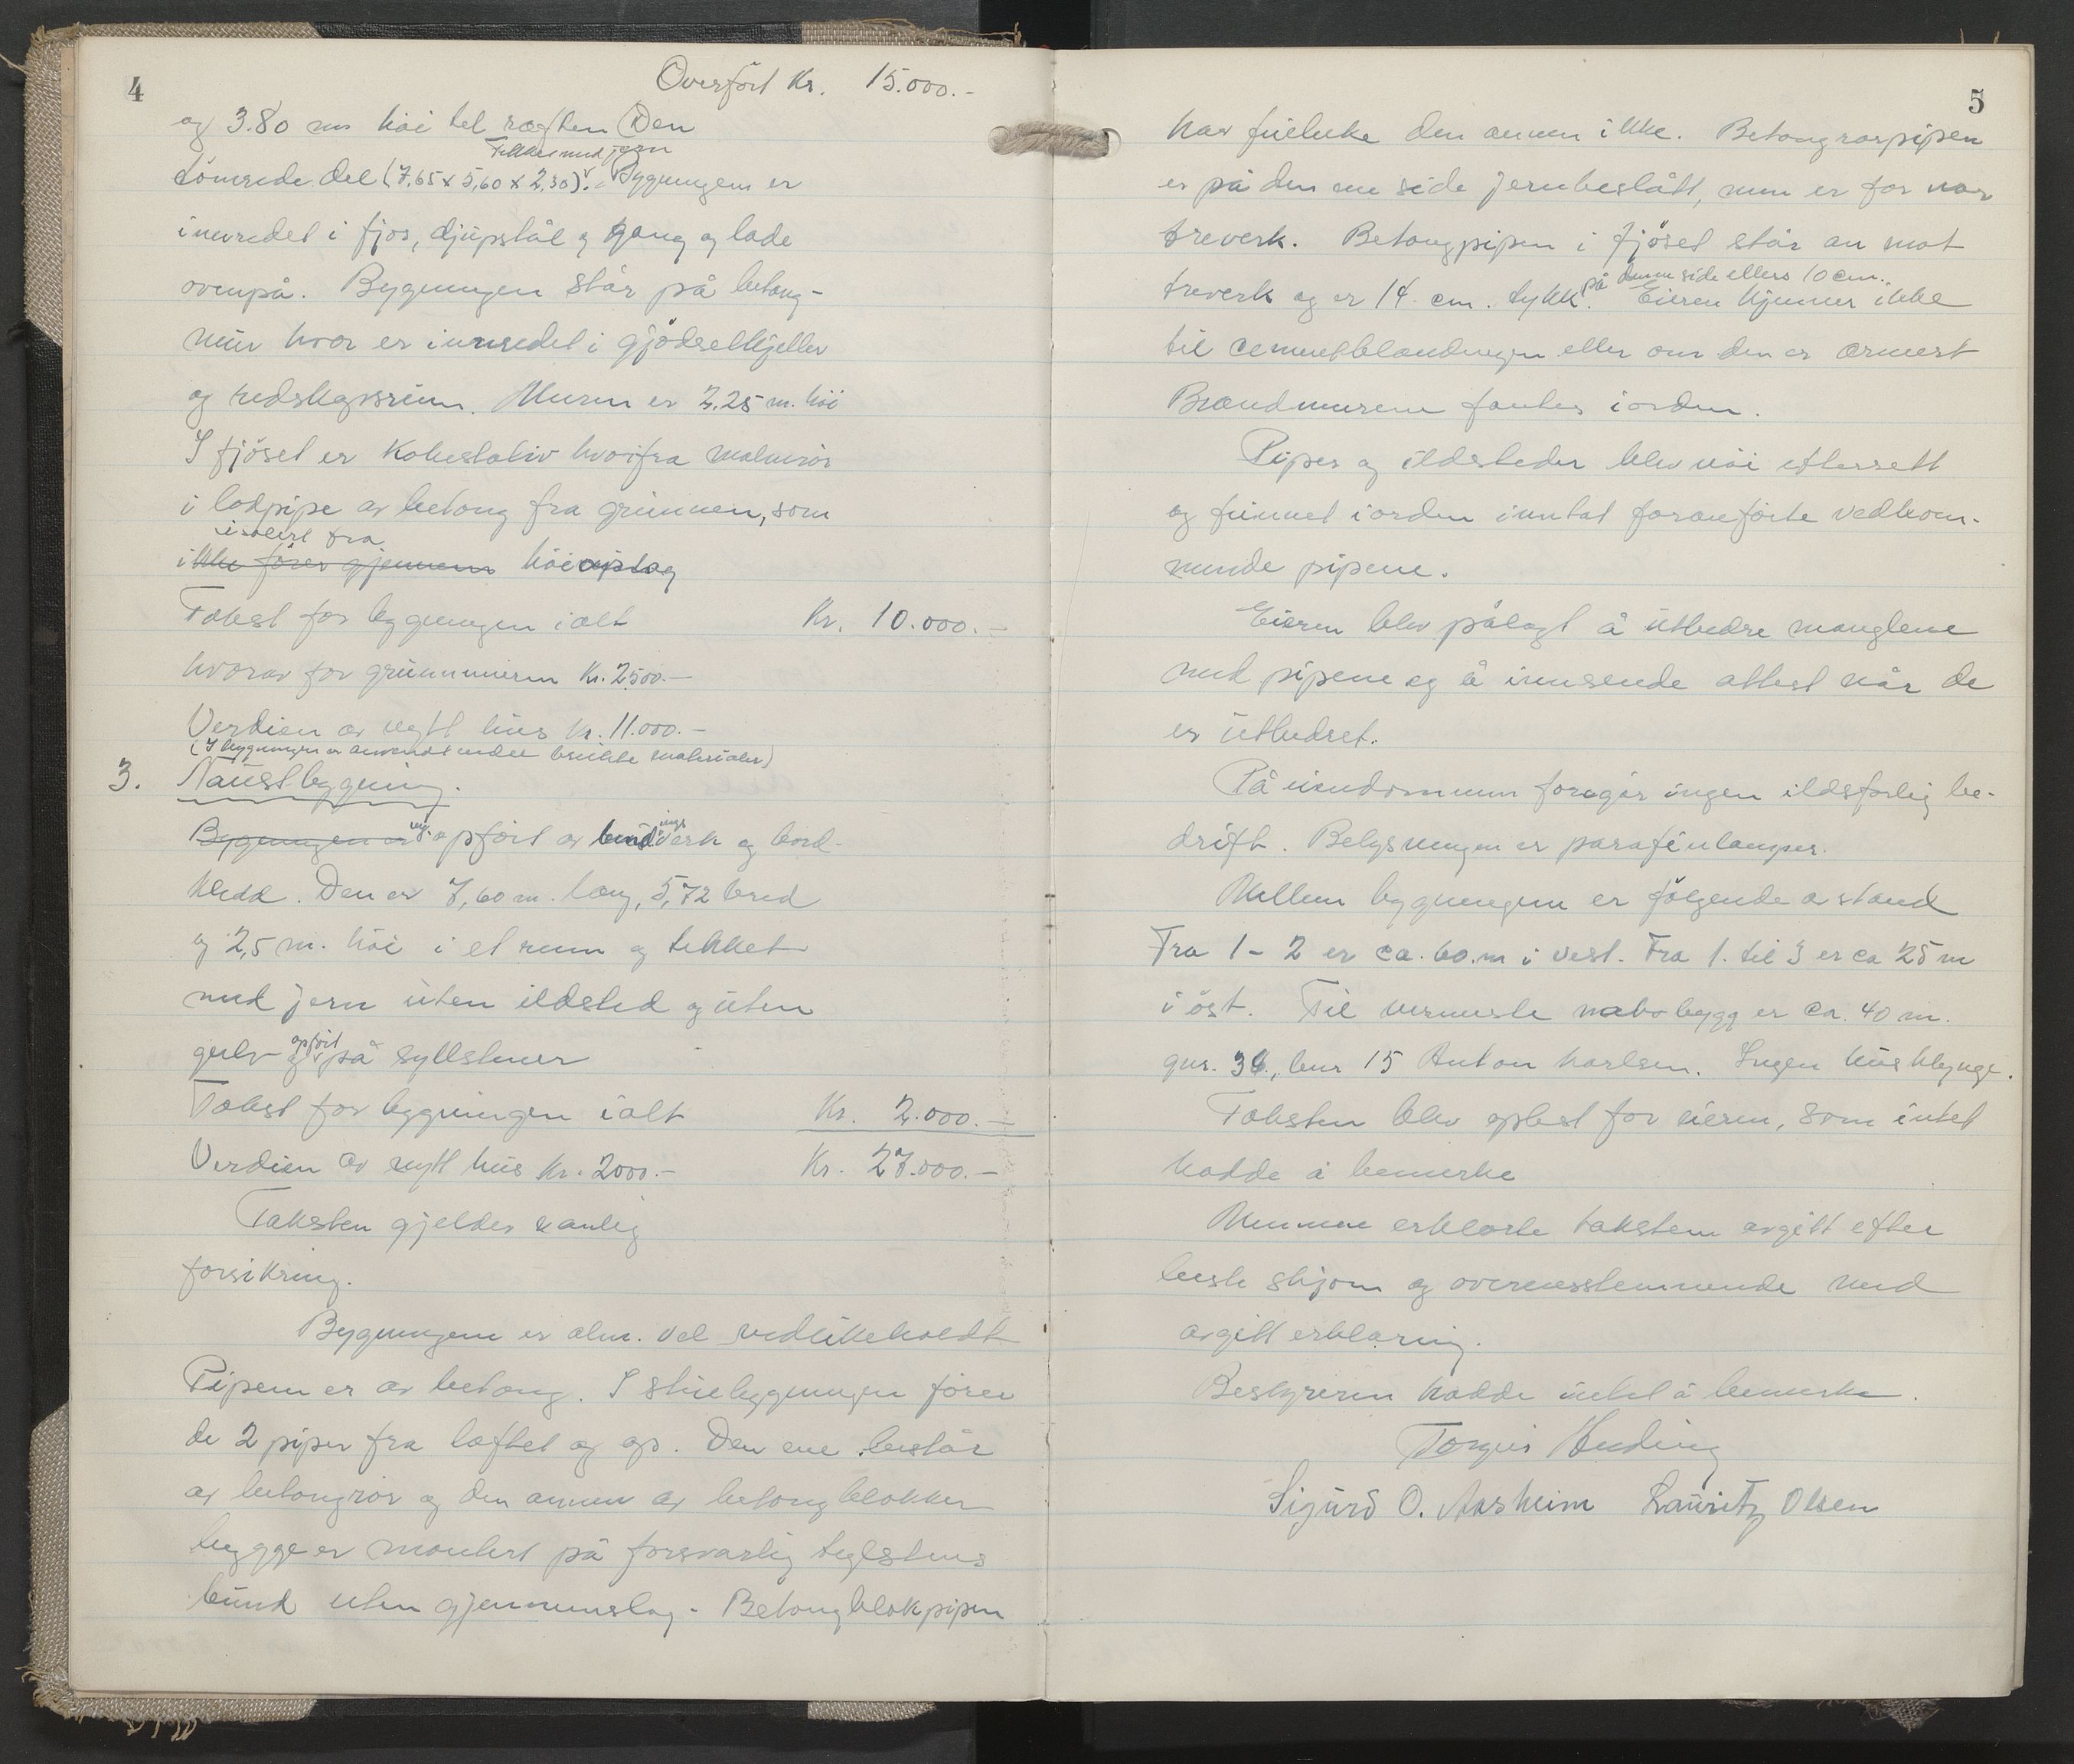 4
Overført Kr. 15.000.-
og 3.80 m høi til røften Den
Tekket med jern
tømrede del (7,65 x 5,60 x 2,30). Bygningen er
innredet i fjøs, djupstål og gang og lade
ovenpå. Bygningen står på betong-
mur hvor er innredet i gjødselkjeller
og redskapsrum. Muren er 2,25 m. høi
I fjøset er Kokestativ hvorfra malmrør
i lodpipe av betong fra grunnen, som
isolert fra
ikke fører gjennem høiopslag
Takst for bygningen ialt Kr. 10.000.-
hvorav for grunnmuren Kr. 2500.-
Verdien av nytt hus Kr. 11.000.-
(I bygningen er anvendt endel brukte materialer)
3. Naustbygning.
Bygningen er opført av bindingsverk og bord-
kledd. Den er 7,60 m. lang, 5,72 bred
og 2,5 m. høi i et rum og tekket
med jern uten ildsted og uten
gulv og opført på syllstener
Takst for bygningen ialt Kr. 2.000.-
Verdien av nytt hus Kr. 2000.- Kr. 27.000.-
Taksten gjelder vanlig
forsikring.
Bygningene er alm. vel vedlikeholdt
Pipene er av betong. I stuebygningen fører
de 2 piper fra loftet og op. Den ene består
av betongrør og den annen av betongblokker
begge er montert på forsvarlig teglstens
bund uten gjennemslag. Betongblokpipen
5
har feieluke den annen ikke. Betongrørpipen
er på den ene side jernbeslått, men er for nær
treverk. Betongpipen i fjøset står an mot
på denne side ellers 10 cm.
treverk og er 14 cm. tykk. Eieren kjenner ikke
til cementblandingen eller om den er armert
Brandmurene fantes iorden.
Piper og ildsteder blev nøi eftersett
og funnet iorden inntat foranførte vedkom-
mende pipene.
Eieren blev pålagt å utbedre manglene
med pipene og å innsende attest når de
er utbedret.
På eiendommen foregår ingen ildsfarlig be-
drift. Belysningen er parafinlamper.
Mellem bygningene er følgende avstand
Fra 1 - 2 er ca. 60. m i vest. Fra 1. til 3 er ca 25 m
i øst. Til nermeste nabobygg er ca. 40 m.
gnr. 34., bnr 15 Anton Karlsen. Ingen husklynge.
Taksten blev oplest for eieren, som intet
hadde å bemerke
Mennene erklærte taksten avgitt efter
beste skjønn og overensstemmende med
avgitt erklæring.
Bestyreren hadde intet å bemerke.
Torgeir Heiding
Sigurd O. Aasheim Lauritz Olsen